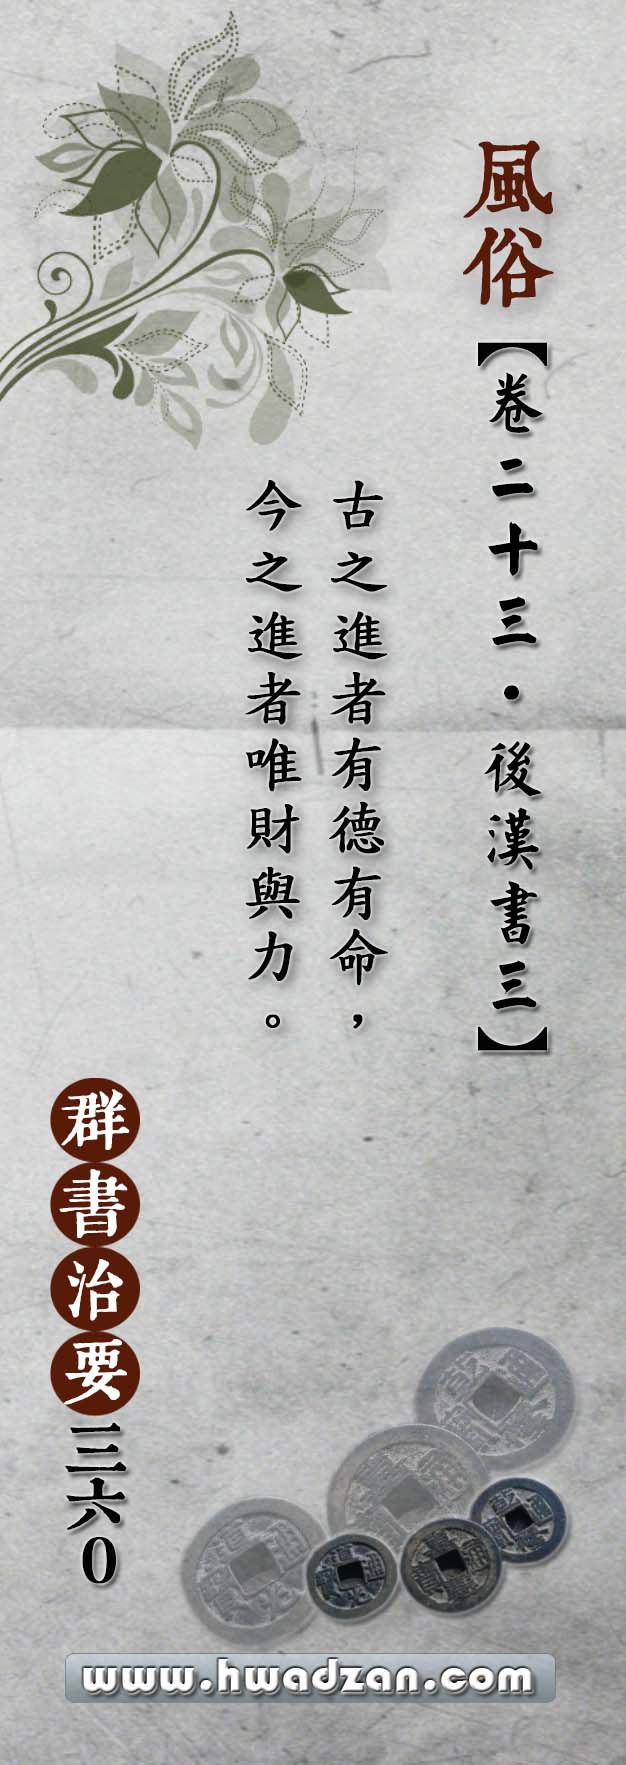 風俗【卷二十三・後漢書三】
古之進者有德有命，
今之進者唯財與力。
群書治要三六0
www.hwadzan.com